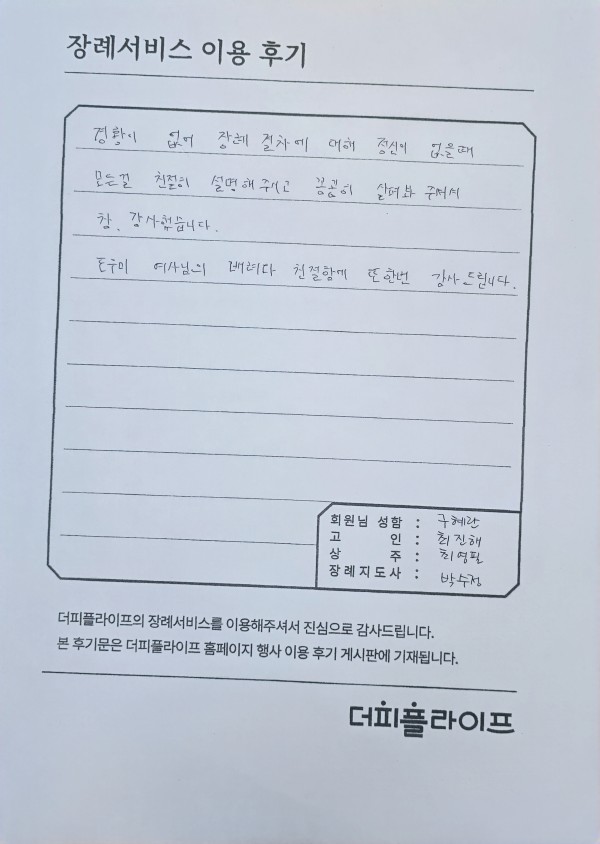 장례서비스 이용 후기
경황이 없어 장례 절차에 대해 정신이 없을때
모든걸 친절히 설명해 주시고 꼼꼼히 살펴봐 주셔서
참. 감사했습니다.
도우미 여사님의 배려다 친절함에 또한번 감사드립니다.
회원님 성함 : 구혜란
고 인 : 최진해
상 주 : 최영필
장례지도사 : 박수정
더피플라이프의 장례서비스를 이용해주셔서 진심으로 감사드립니다.
본 후기문은 더피플라이프 홈페이지 행사 이용 후기 게시판에 기재됩니다.
더피플라이프